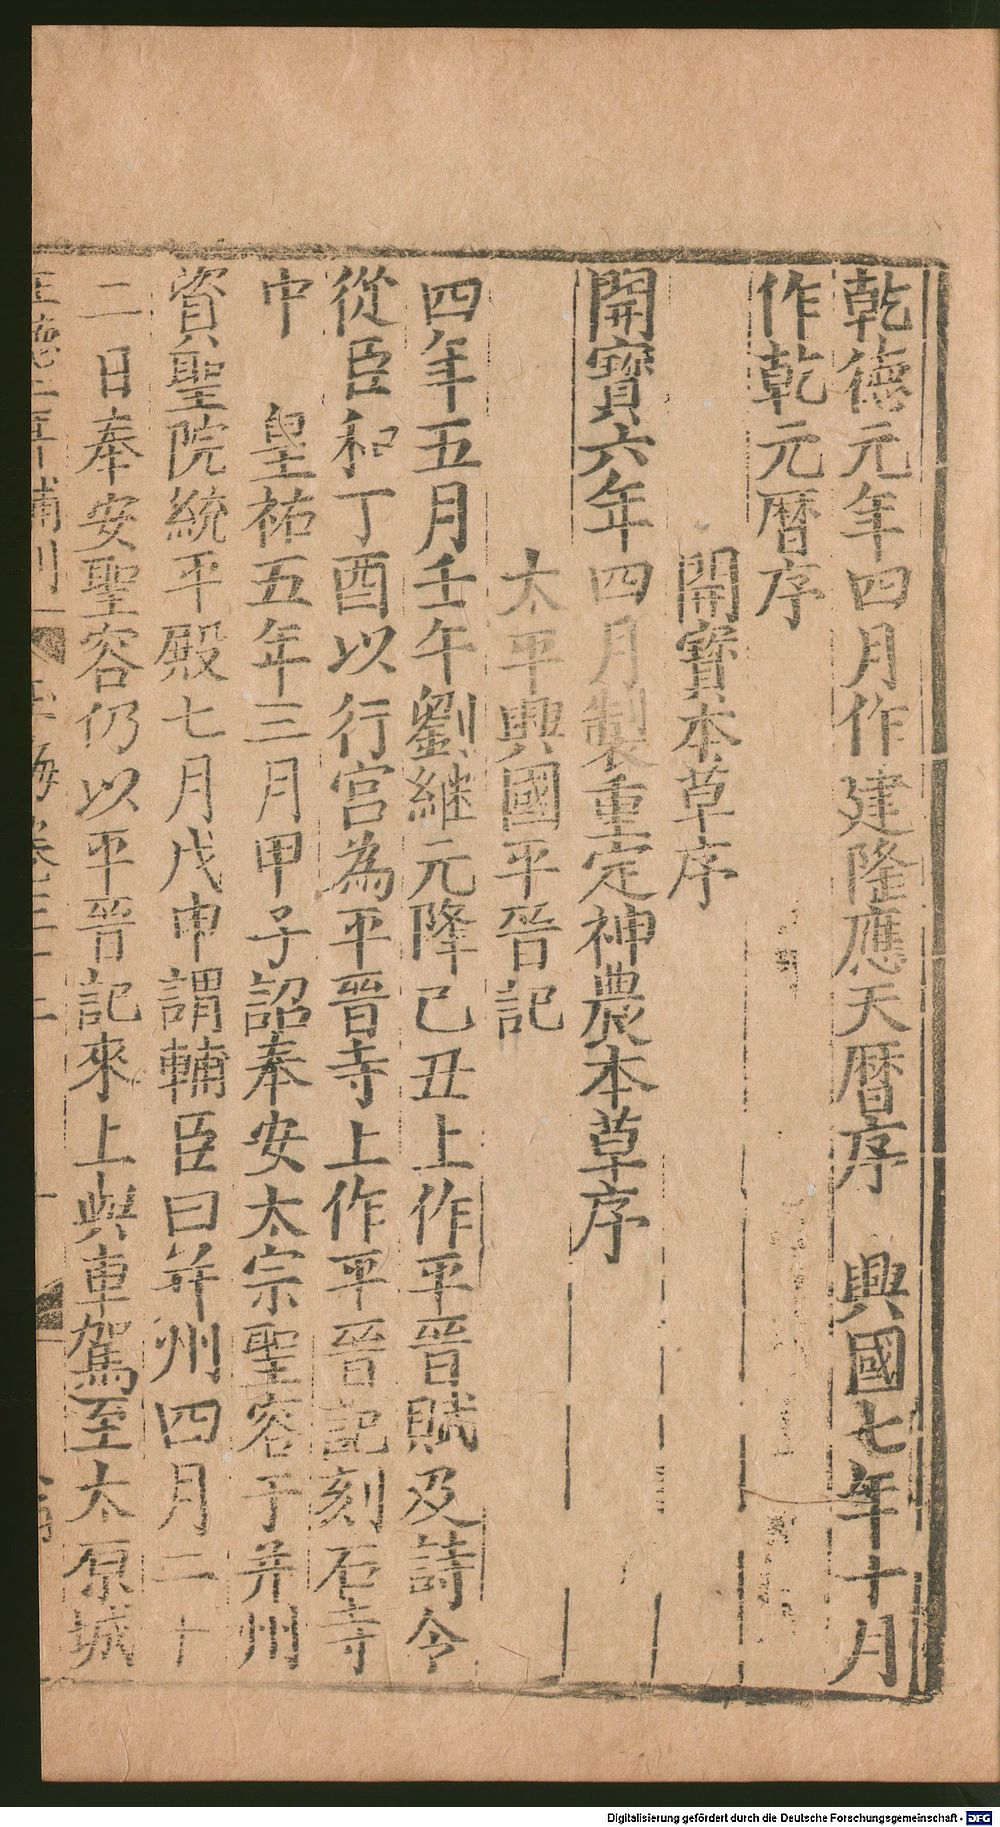 乾德元年四月作建隆應天曆序　興國七年十月
作乾元曆序
開寶本草序
開寶六年四月製重定神農本草序
太平興國平晉記
四年五月壬午劉継元降己丑上作平晉賦及詩令
從臣和丁酉以行宫為平晉寺上作平晉記刻石寺
中　皇祐五年三月甲子詔奉安太宗聖容于并州
資聖院統平殿七月戊申謂輔臣曰并州四月二十
二日奉安聖容仍以平晉記來上與車駕至太原城
海卷三十二
Digitalisierung gefördert durch die Deutsche Forschungsgemeinschaft - DFG